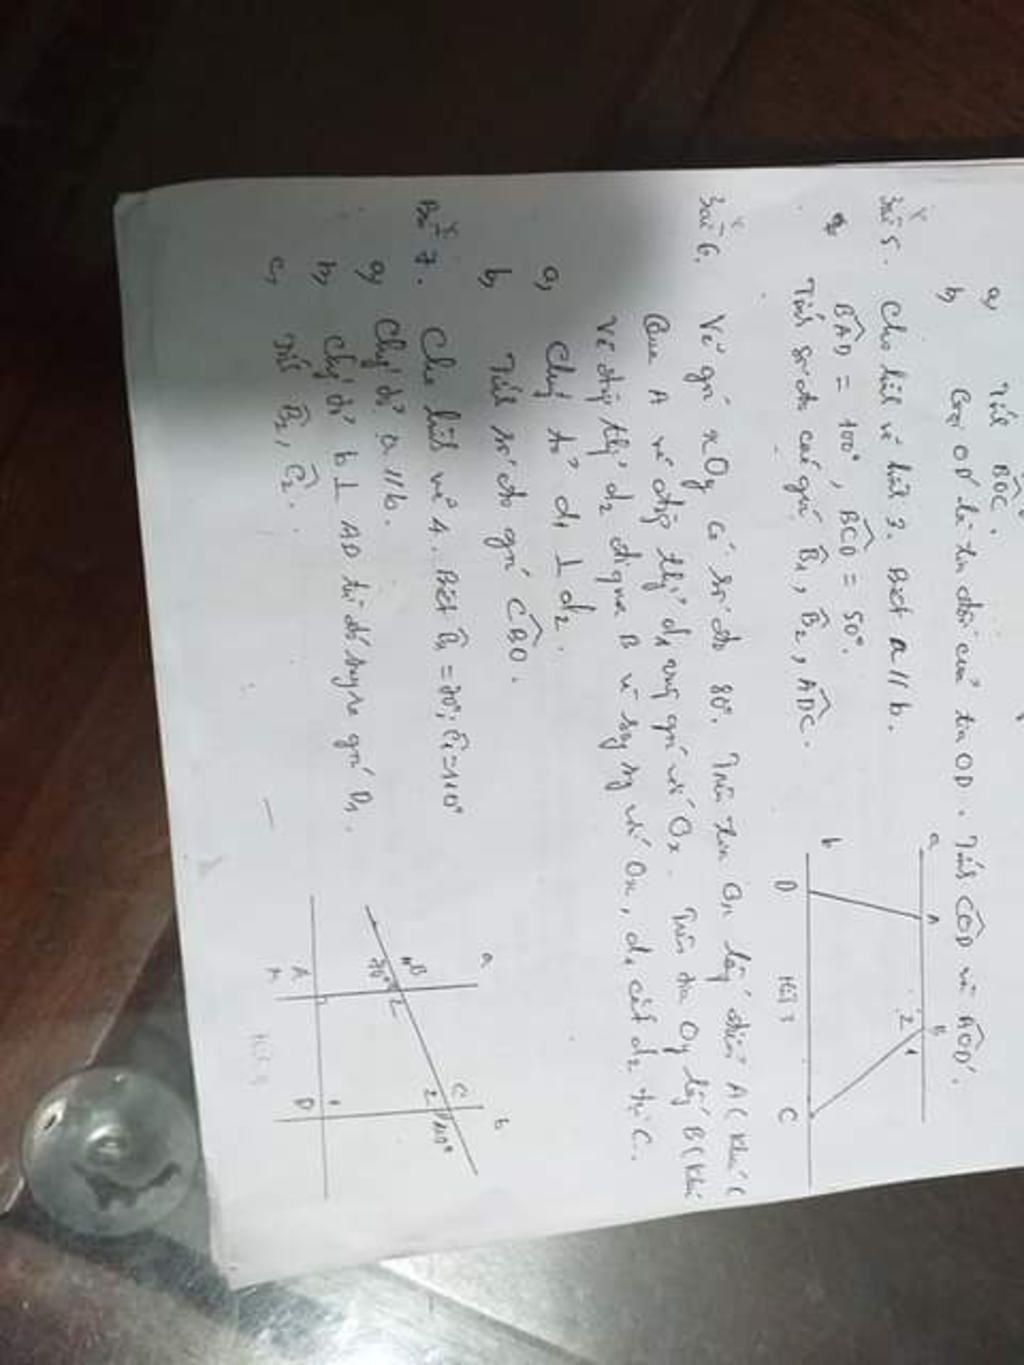 a, Tính BOC.
b, Gọi OD' là tia đối của tia OD. Tính COD và AOD'.
Bài 5. Cho hình vẽ hình 3. Biết a // b.
BAD = 100°, BCD = 50°.
Tính số đo các góc B1, B2, ADC.
a A B
2 1
b D C
Hình 3
Bài 6. Vẽ góc xOy có số đo 80°. Trên tia Ox lấy điểm A (khác
Qua A vẽ đường thẳng d1 vuông góc với Ox. Trên tia Oy lấy B (khác
Vẽ đường thẳng d2 đi qua B và song song với Ox, d1 cắt d2 tại C.
a, Chứng tỏ d1 ⊥ d2.
b, Tính số đo góc CBO.
Bài 7. Cho hình vẽ 4. Biết B1 = 70°; C1 = 110°
a, Chứng tỏ a // b.
b, Chứng tỏ b ⊥ AD từ đó suy ra góc D1.
c, Tính B2, C2.
a b
B C
1 70° 2 2 1 110°
A D 1
Hình 4